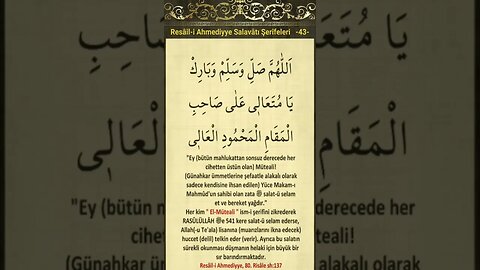 Resâil-i Ahmediyye Salavâtı Şerifeleri -43-
اَللّٰهُمَّ صَلِّ وَسَلِّمْ وَبَارِكْ
يَا مُتَعَالِي عَلٰى صَاحِبِ
الْمَقَامِ الْمَحْمُودِ الْعَالِي
"Ey (bütün mahlukattan sonsuz derecede her
cihetten üstün olan) Müteali!
(Günahkar ümmetlerine şefaatle alakalı olarak
sadece kendisine ihsan edilen) Yüce Makam-ı
Mahmûd'un sahibi olan zata ﷺ salat-ü selam
et ve bereket yağdır."
Her kim " El-Müteali " ism-i şerifini zikrederek
RASÛLÜLLÂH ﷺe 541 kere salat-ü selam ederse,
Allah(-u Te'ala) lisanına (muarızlarını ikna edecek)
huccet (delil) telkin eder (verir). Ayrıca bu salatın
sürekli okunması düşmanın helaki için büyük bir
sır barındırmaktadır.
Resâil-i Ahmediyye, 80. Risâle sh:137
"Ey (bütün m
cihet
(Günahkar ü
sadece kend
Mahmûd'un
e
Her kim " El
RASÛLÜLLÂ
derecede her
ali!
alı olarak
ce Makam-ı
at-ü selam
zikrederek
am ederse,